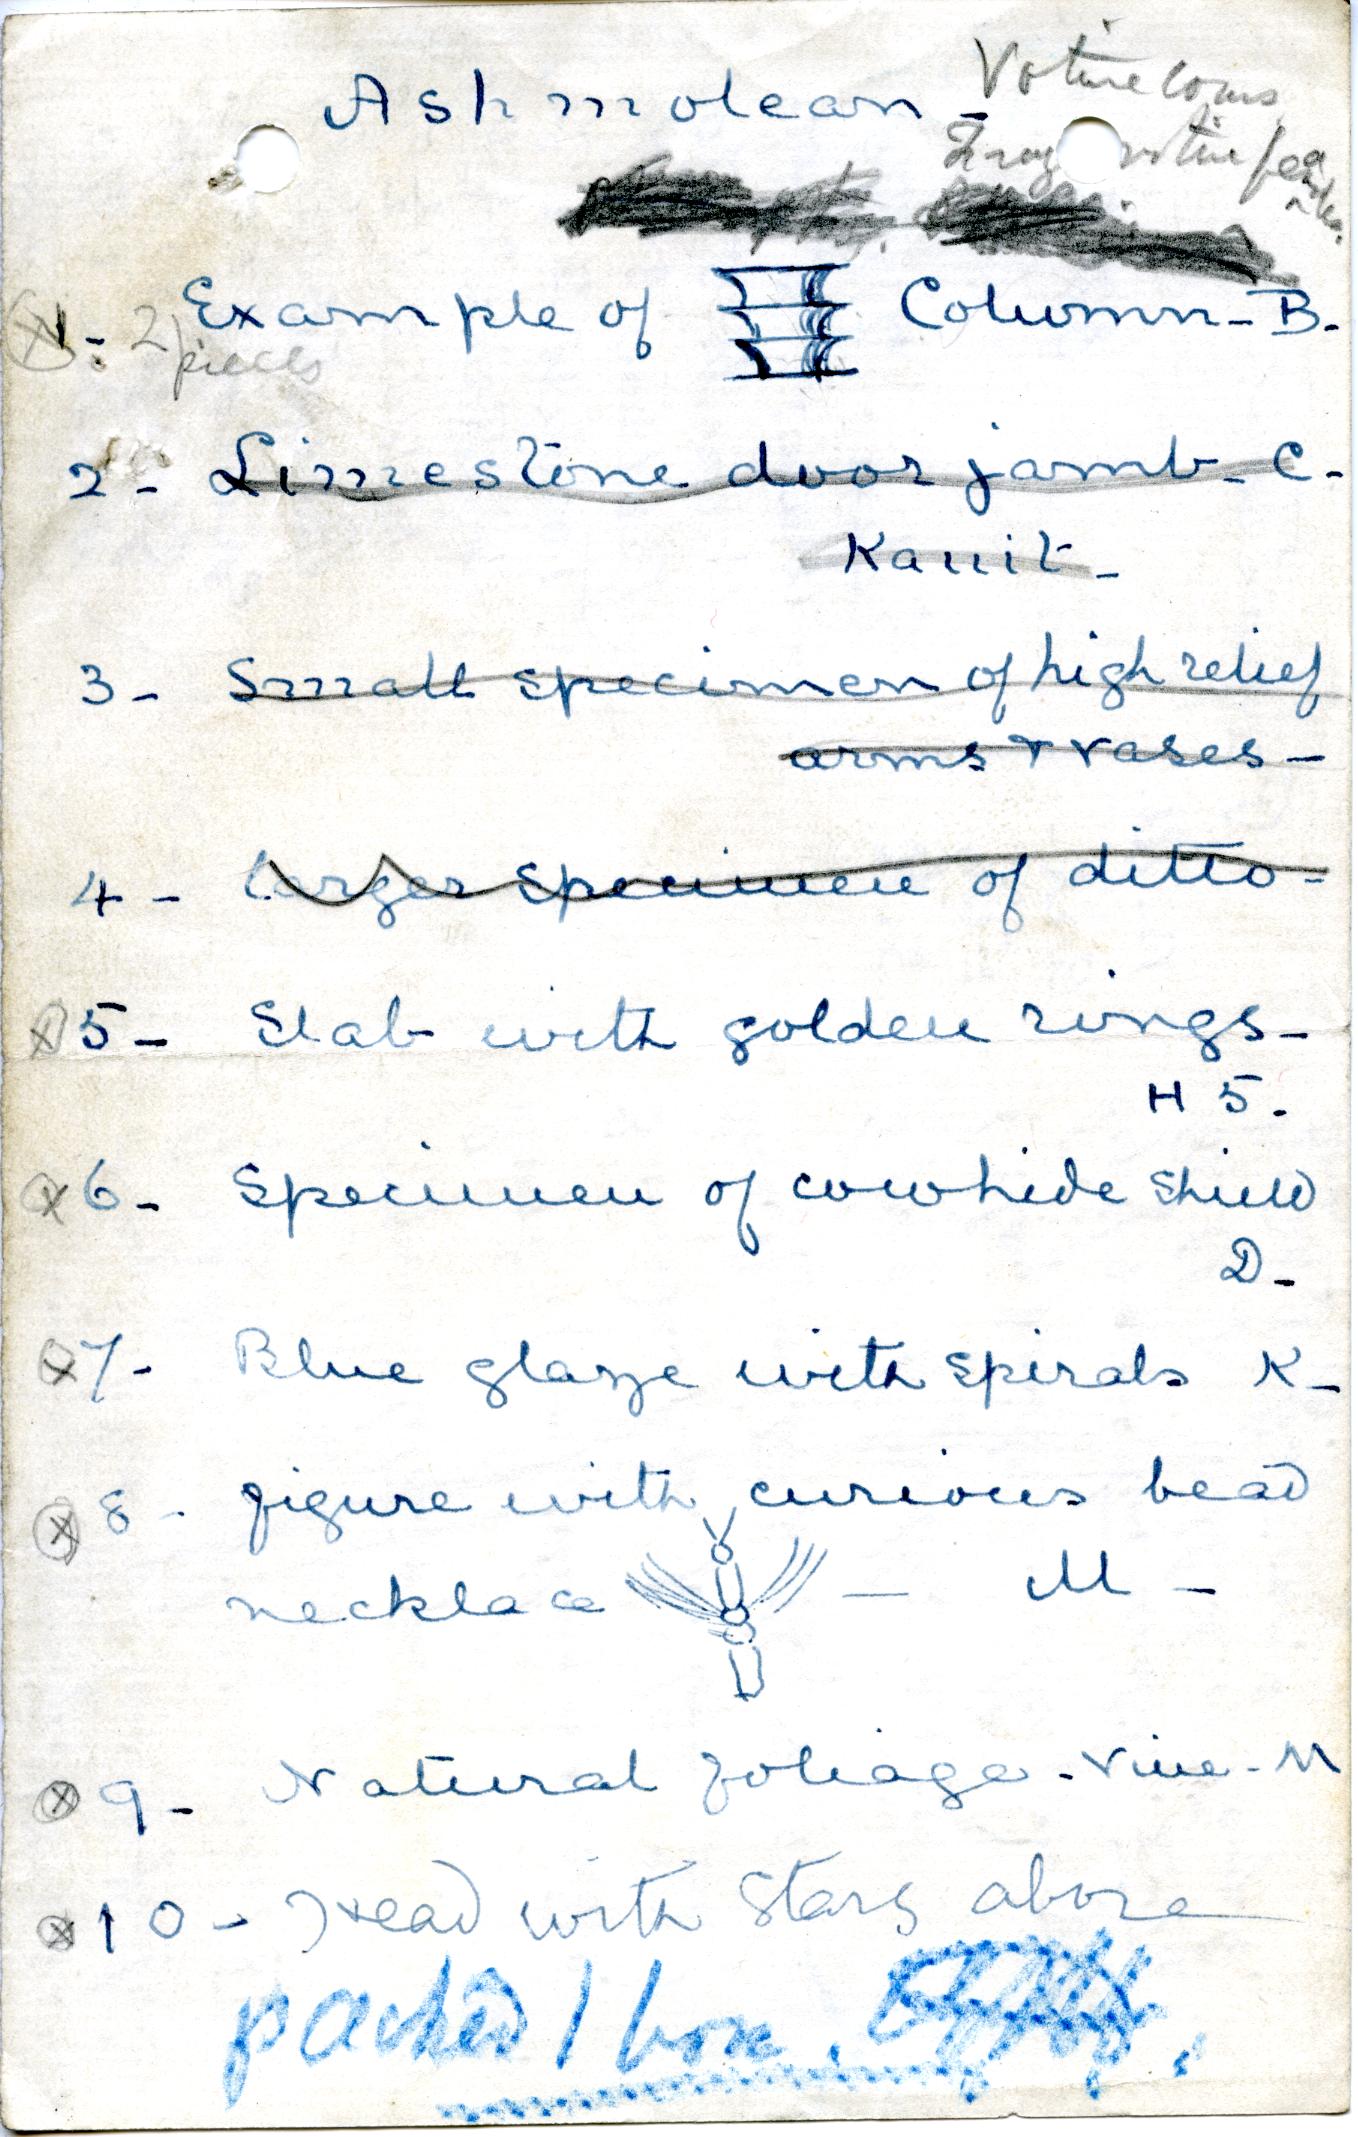 Ashmolean -
Votive cows
Frag votive fea
1 - Example of Column - B.
2 pieces
2 - Limestone door jamb - C -
Kauit -
3 - Small specimen of high relief
arms & vases -
4 - larger specimen of ditto -
5 - Slab with golden rings -
H 5.
6 - Specimen of cowhide shield
D -
7 - Blue glaze with spirals K -
8 - figure with curious bead
necklace - M -
9 - Natural foliage - Vine - M
10 - Head with stars above
packed 1 box.